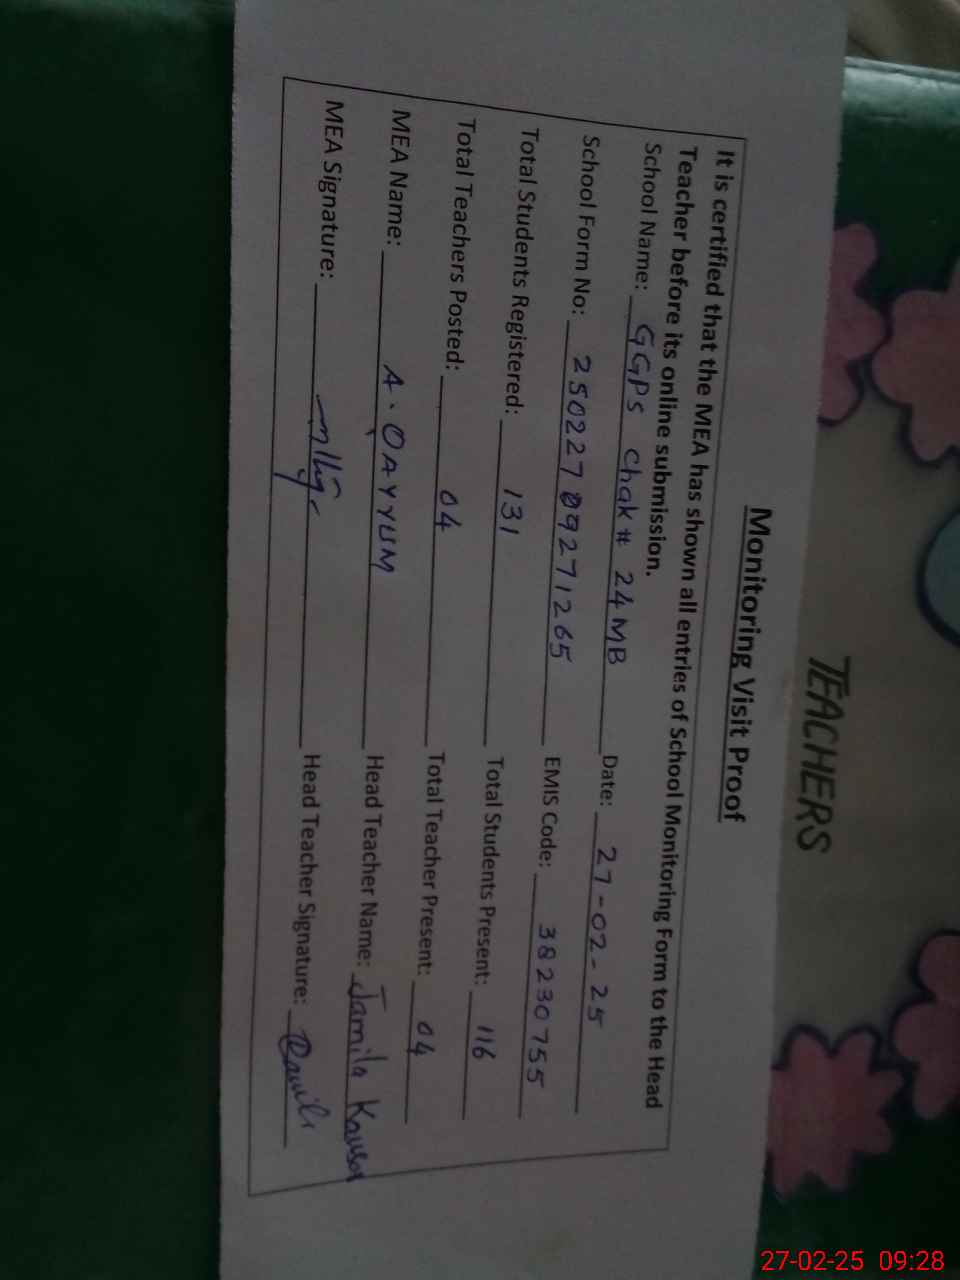 TEACHERS
Monitoring Visit Proof
It is certified that the MEA has shown all entries of School Monitoring Form to the Head
Teacher before its online submission.
School Name: GGPS Chak # 24MB Date: 27-02-25
School Form No: 25022709271265 EMIS Code: 38230755
Total Students Registered: 131 Total Students Present: 116
Total Teachers Posted: 04 Total Teacher Present: 04
MEA Name: A. QAYYUM Head Teacher Name: Jamila Kausar
MEA Signature: Head Teacher Signature:
27-02-25 09:28